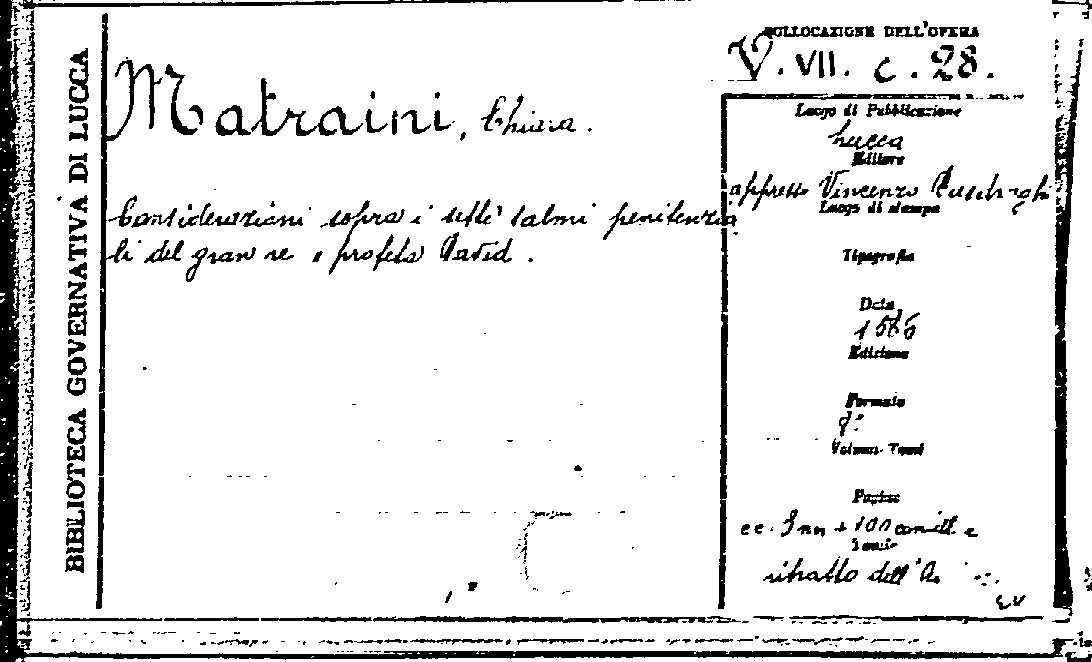 BIBLIOTECA GOVERNATIVA DI LUCCA
COLLOCAZIONE DELL'OPERA
V. VII. c. 28.
Matraini, Chiara.
Considerazioni sopra i sette salmi penitenzia
li del gran re e profeta David.
Luogo di Pubblicazione
Lucca
Editore
appresso Vincenzo Busdraghi
Luogo di stampa
Tipografia
Data
1586
Edizione
Formato
8°
Volumi - Tomi
Pagine
cc. 3nn + 100 con ill. e
ritratto dell'A.